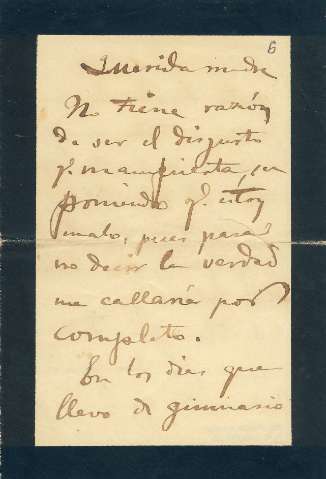 6
Querida madre
No tiene razón
de ser el disgusto
q. manifiesta, su
poniendo q. estoy
malo, pues para
no decir la verdad
me callaría por
completo.
En los dias que
llevo de gimnasio